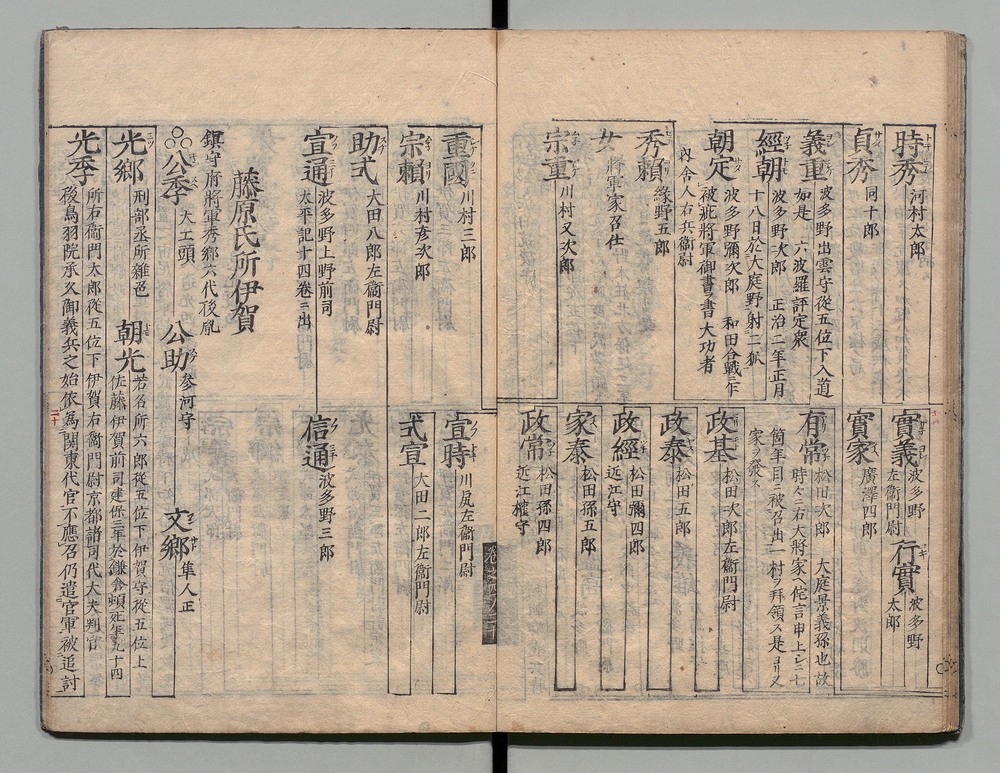 時秀 河村太郎
貞秀 同十郎
義重 波多野出雲守從五位下入道
如是 六波羅評定衆
經朝 波多野次郎 正治二年正月
十八日於大庭野射二狐
朝定 波多野彌次郎 和田合戰ニ乍
被疵將軍御書ヲ書大功者
内舎人右兵衞尉
秀賴 緑野五郎
女 將軍家召仕
宗重 川村又次郎
實義 波多野
左衞門尉
行實 波多野
太郎
實家 廣澤四郎
有常 松田次郎 大庭景義孫也故
時々ニ右大將家ヘ侘言申上シニ七
箇年目ニ被召出一村ヲ拜領ス是ヨリ又
家ヲ發ス
政基 松田次郎左衞門尉
政泰 松田五郎
政經 松田彌四郎
近江守
家泰 松田孫五郎
政常 松田孫四郎
近江權守
重國 川村三郎
宗賴 川村彦次郎
助式 大田八郎左衞門尉
宣通 波多野上野前司
太平記十四卷ニ出
宣時 川尻左衞門尉
式宣 大田二郎左衞門尉
信通 波多野三郎
藤原氏所伊賀
鎮守府將軍秀郷六代後胤
公季 大工頭
公助 參河守
文郷 隼人正
光郷 刑部丞所雜色
朝光 若名所六郎從五位下伊賀守從五位上
佐藤伊賀前司建保三年於鎌倉頓死年九十四
光季 所右衞門太郎從五位下伊賀右衞門尉京都諸司代大夫判官
後鳥羽院承久御義兵之始依為関東代官不應召仍遣官軍被追討